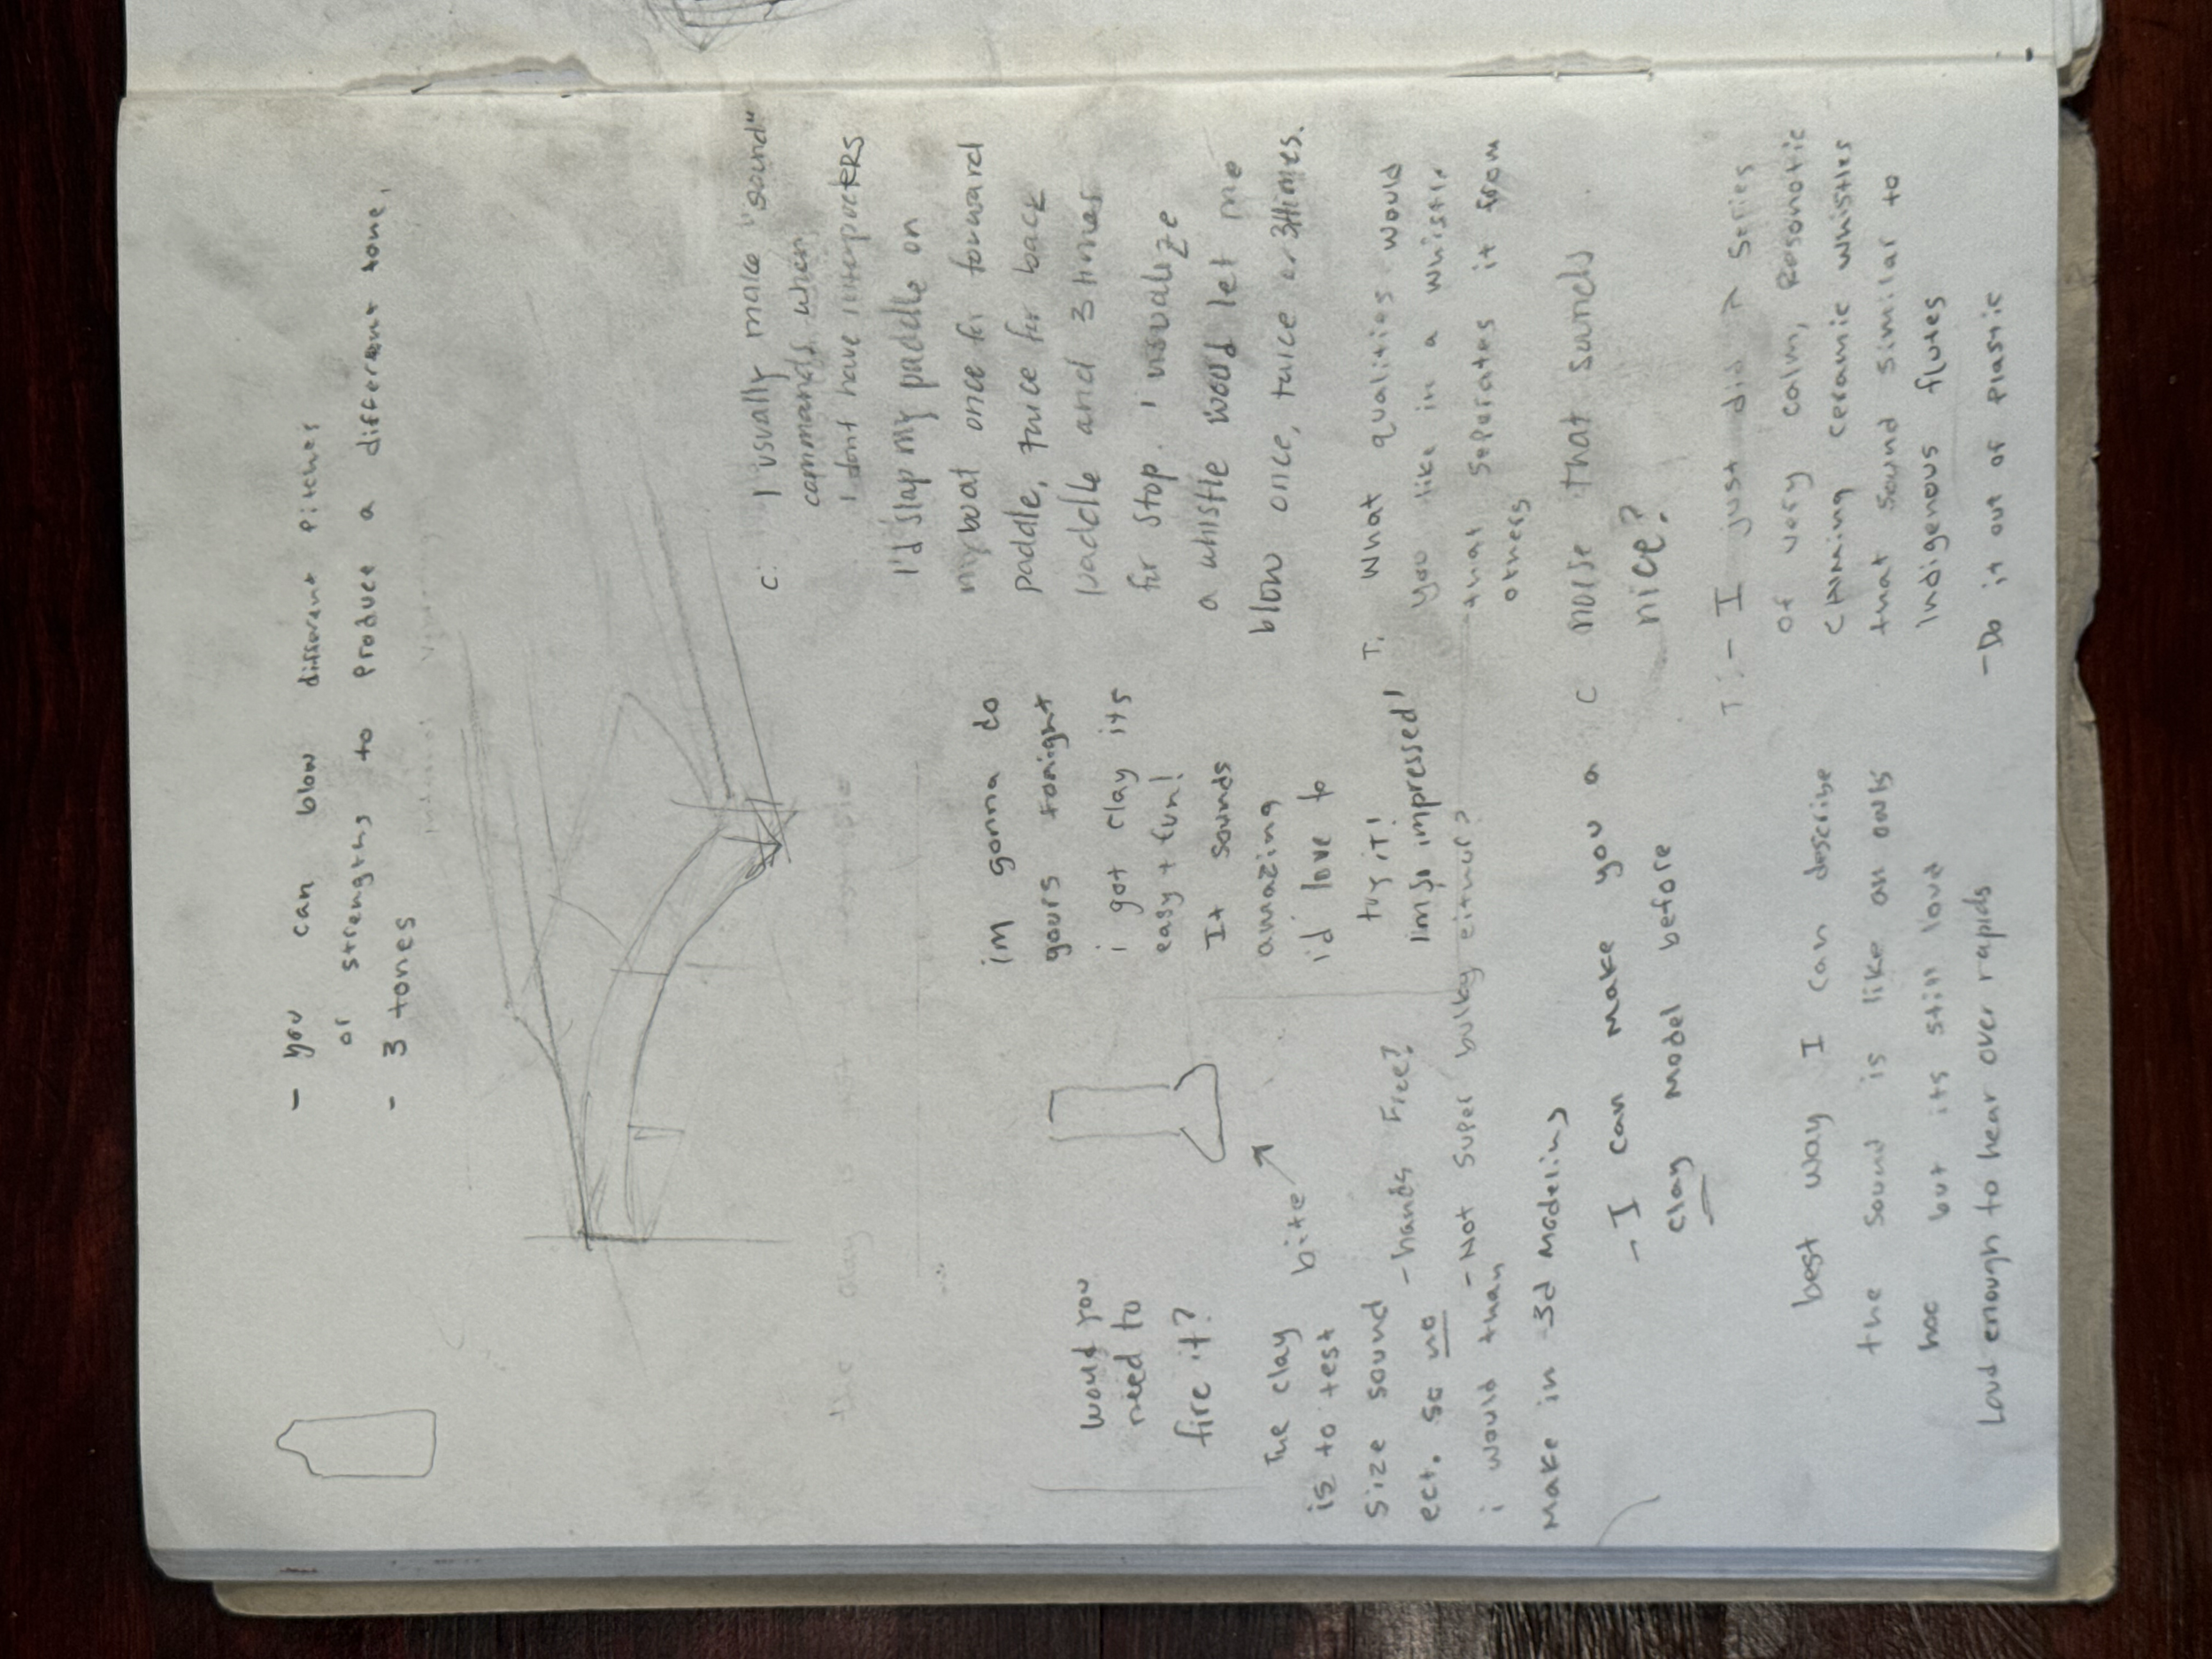 - you can blow different pitches
or strengths to produce a different tone.
- 3 tones
C: I usually make "sound"
commands when
I dont have interpreters
I'd slap my paddle on
my boat once for forward
paddle, twice for back
paddle and 3 times
for stop. I visualize
a whistle would let me
blow once, twice or 3 times.
T. What qualities would
you like in a whistle
that seperates it from
others
C noise that sounds
nice?
T: - I just did a series
of very calm, Resonatic
calming ceramic whistles
that sound similar to
Indigenous flutes
- Do it out of plastic
im gonna do
yours tonight
i got clay its
easy + fun!
It sounds
amazing
id love to
try it!
im so impressed!
would you
need to
fire it?
The clay
is to test
size sound
ect. so no
i would than
make in 3d modeling
bite
- hands free?
- Not super bulky either?
- I can make you a
clay model before
best way I can describe
the sound is like an owls
hoo but its still loud
Loud enough to hear over rapids